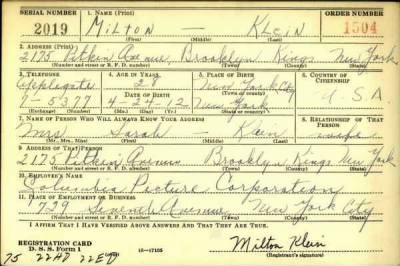 SERIAL NUMBER 1. NAME (Print) ORDER NUMBER
2019 MILTON — KLEIN 1504
(First) (Middle) (Last)
2. ADDRESS (Print)
2175 Pitkin Avenue, Brooklyn Kings New York
(Number and street or R. F. D. number) (Town) (County) (State)
3. TELEPHONE 4. AGE IN YEARS 5. PLACE OF BIRTH 6. COUNTRY OF CITIZENSHIP
Applegate 28 New York City
DATE OF BIRTH U S A.
7-5377 4-24-12 New York
(Exchange) (Number) (Mo.) (Day) (Yr.) (State or country)
7. NAME OF PERSON WHO WILL ALWAYS KNOW YOUR ADDRESS 8. RELATIONSHIP OF THAT PERSON
Mrs Sarah — Klein wife
(Mr., Mrs., Miss) (First) (Middle) (Last)
9. ADDRESS OF THAT PERSON
2175 Pitkin Avenue Brooklyn Kings New York
(Number and street or R. F. D. number) (Town) (County) (State)
10. EMPLOYER'S NAME
Columbia Picture Corporation
11. PLACE OF EMPLOYMENT OR BUSINESS
729 Seventh Avenue, New York City
(Number and street or R. F. D. number) (Town) (County) (State)
I AFFIRM THAT I HAVE VERIFIED ABOVE ANSWERS AND THAT THEY ARE TRUE.
REGISTRATION CARD
D. S. S. Form 1 16—17105 Milton Klein
(Registrant's signature)